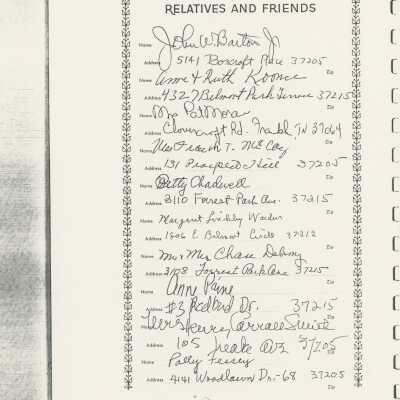 RELATIVES AND FRIENDS
Name John W. Barton Jr
Address 5141 Boxcroft Place 37205
Zip
Name Anne & Ruth Koonce
Address 4327 Belmont Park Terrace 37215
Zip
Name Mrs Pat Moran
Address Clovercroft Rd. TN 37064
Zip
Name Mrs Frank T. McCoy
Address 131 Prospect Hill 37205
Zip
Name Betty Chadwell
Address 3110 Forrest Park Ave. 37215
Zip
Name Margaret Lindsley Warden
Address 1806 E Belmont Circle 37212
Zip
Name Mr & Mrs Chase
Address 3108 Forrest Park Ave 37215
Zip
Name Anne Paine
Address #3 Redbud Dr. 37215
Zip
Name Mrs Henry
Address 105 Leake Ave 37205
Zip
Name Polly Fessey
Address 4141 Woodlawn Dr. -68 37205
Zip